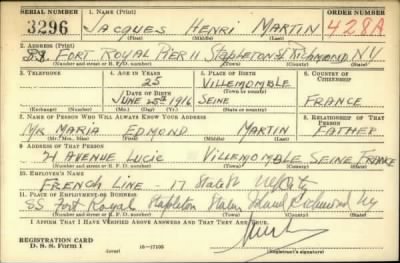 SERIAL NUMBER 1. NAME (Print) ORDER NUMBER
3296 JACQUES HENRI MARTIN 428A
(First) (Middle) (Last)
2. ADDRESS (Print)
FORT ROYAL PIER 11 STAPLETON RICHMOND NY
(Number and street or R. F. D. number) (Town) (County) (State)
3. TELEPHONE 4. AGE IN YEARS 5. PLACE OF BIRTH 6. COUNTRY OF CITIZENSHIP
25 VILLEMOMBLE
DATE OF BIRTH (Town or county)
JUNE 25th 1916 SEINE FRANCE
(Exchange) (Number) (Mo.) (Day) (Yr.) (State or country)
7. NAME OF PERSON WHO WILL ALWAYS KNOW YOUR ADDRESS 8. RELATIONSHIP OF THAT PERSON
Mr MARIA EDMOND MARTIN FATHER
(Mr., Mrs., Miss) (First) (Middle) (Last)
9. ADDRESS OF THAT PERSON
21 AVENUE LUCIE VILLEMOMBLE SEINE FRANCE
(Number and street or R. F. D. number) (Town) (County) (State)
10. EMPLOYER'S NAME
FRENCH LINE 17 State St
11. PLACE OF EMPLOYMENT OR BUSINESS
SS Fort Royal Stapleton Staten Island Richmond NY
(Number and street or R. F. D. number) (Town) (County) (State)
I AFFIRM THAT I HAVE VERIFIED ABOVE ANSWERS AND THAT THEY ARE TRUE.
REGISTRATION CARD
D. S. S. Form 1 (over) 16-17105 (Registrant's signature)